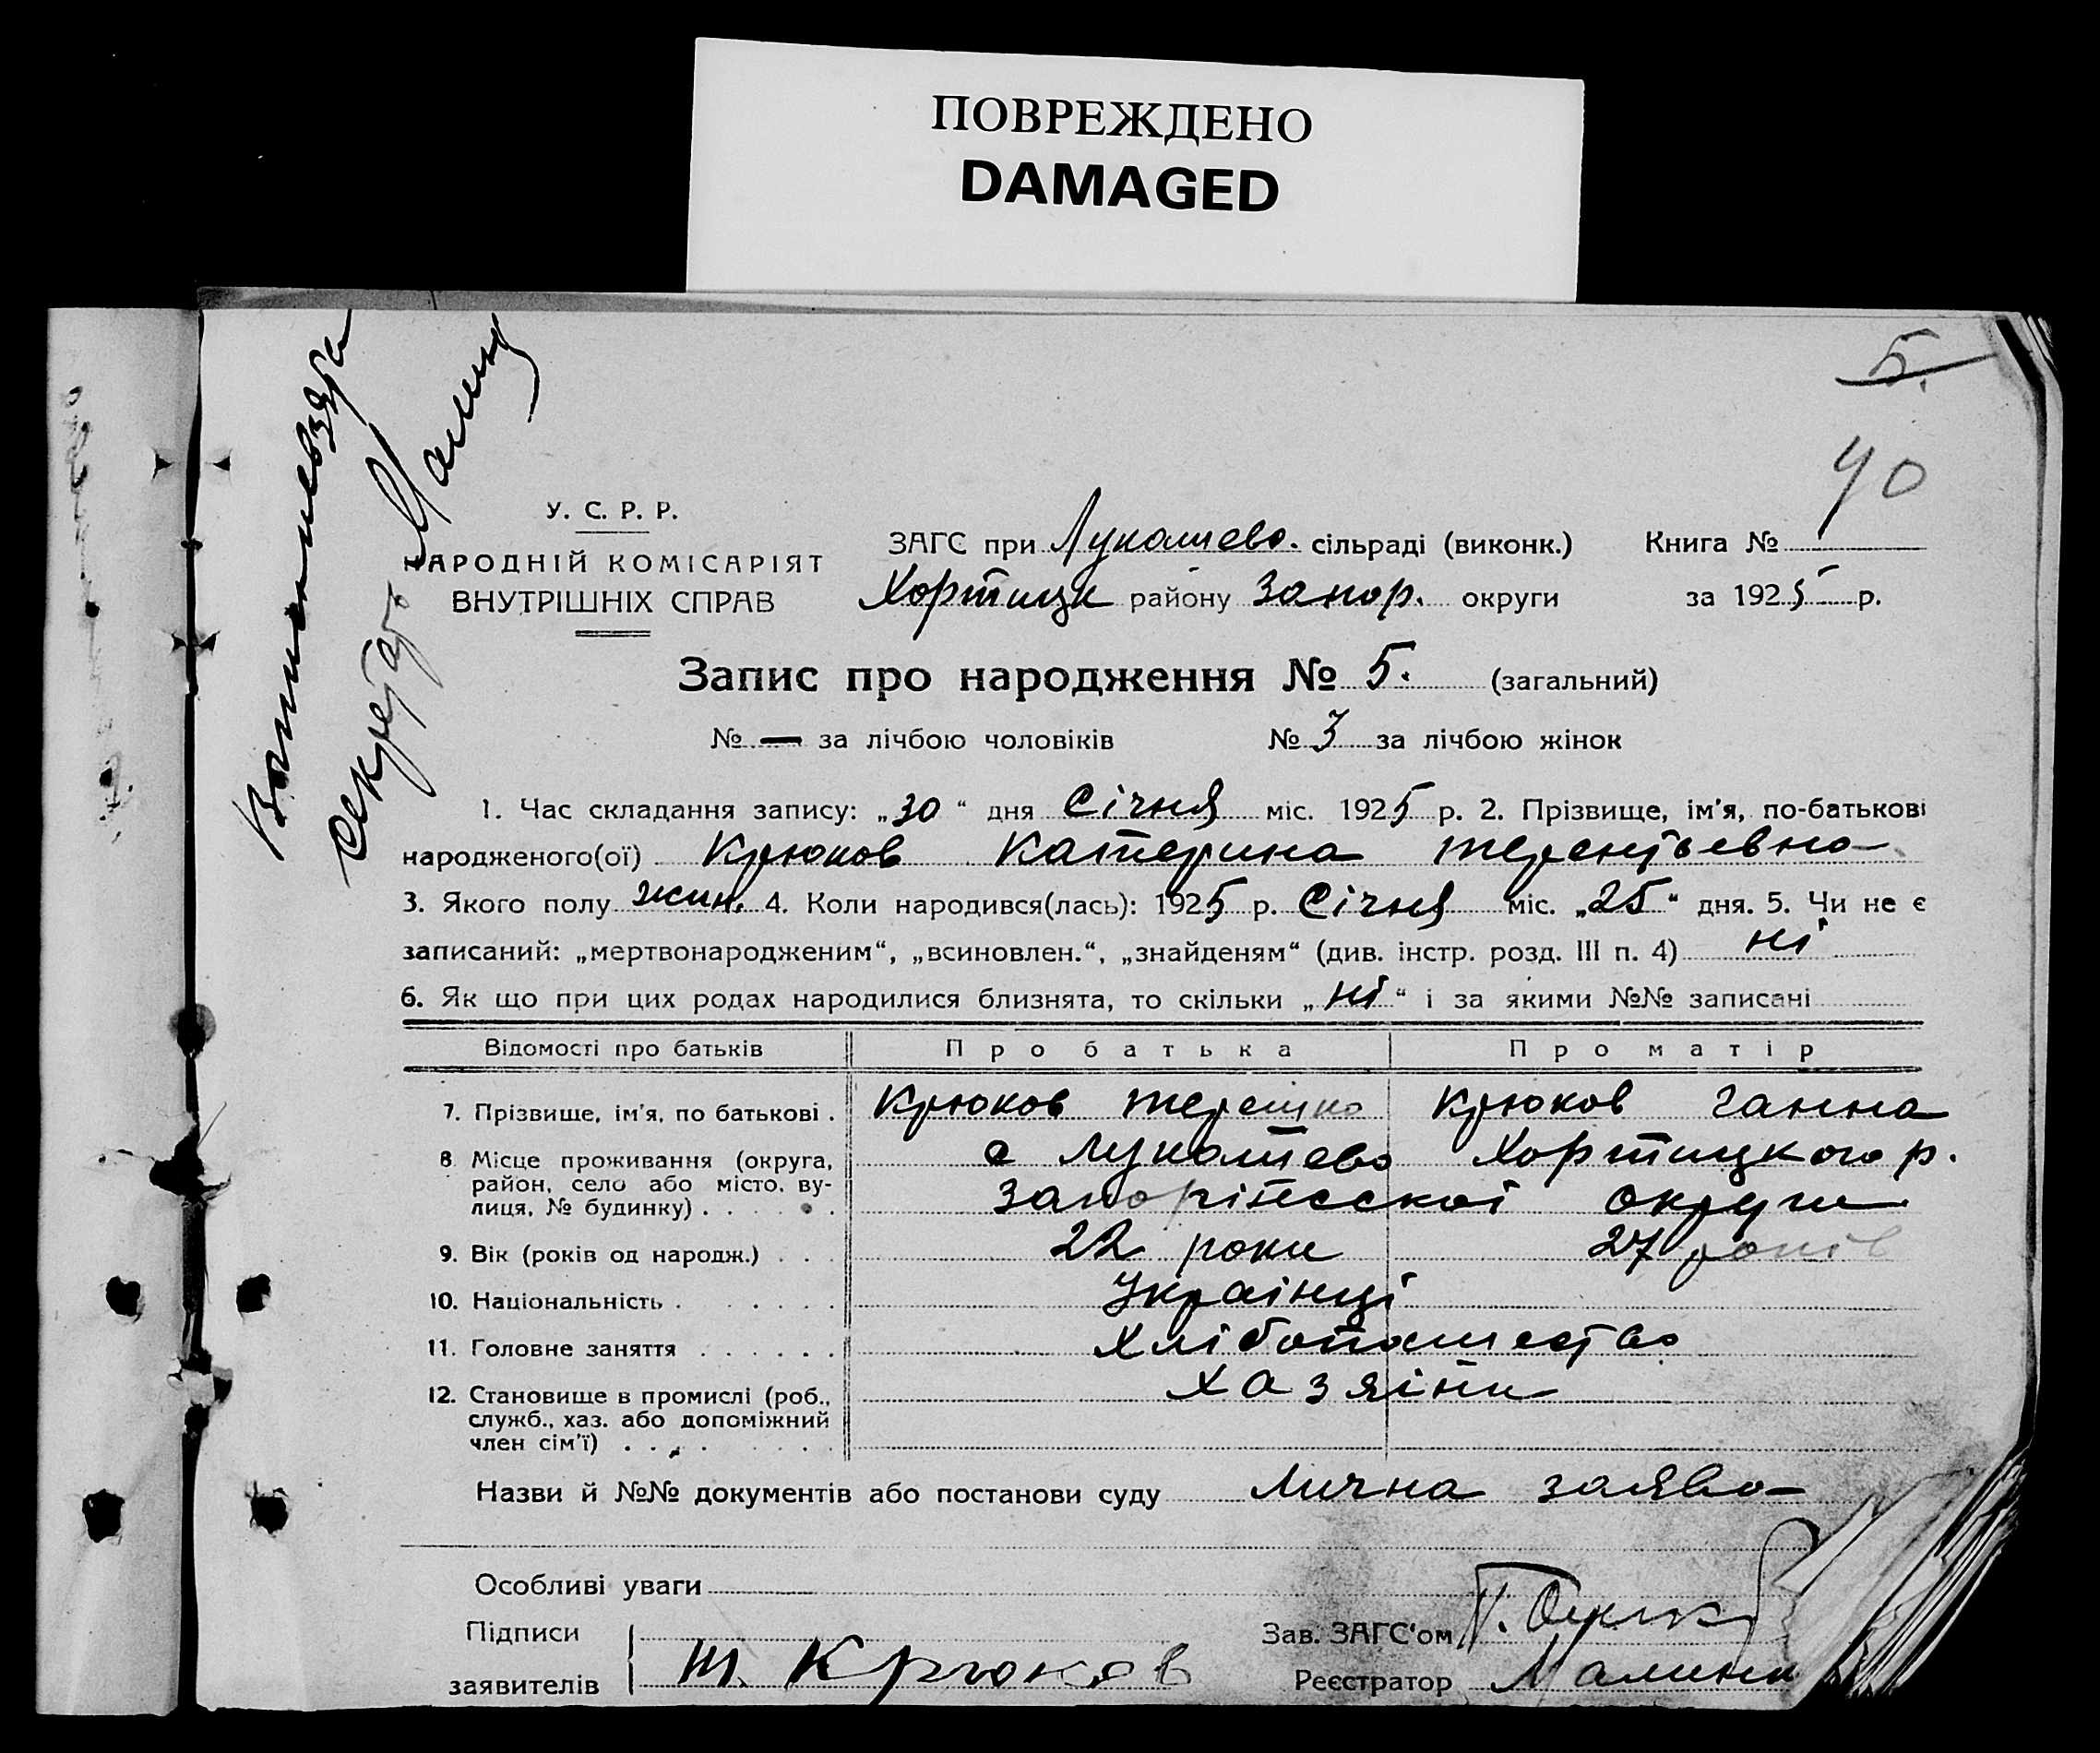 ПОВРЕЖДЕНО
DAMAGED
5.
40
Секретарь
У. С. Р. Р.
НАРОДНІЙ КОМІСАРІЯТ
ВНУТРІШНІХ СПРАВ
ЗАГС при Лукашево. сільраді (виконк.) Книга №
Хортицк району Запор. округи за 1925 р.
Запис про народження № 5. (загальний)
№ — за лічбою чоловіків № 3 за лічбою жінок
1. Час складання запису: „30“ дня Січня міс. 1925 р. 2. Прізвище, ім'я, по-батькові
народженого(ої) Крюков Катерина Терентьевна
3. Якого полу жин. 4. Коли народився(лась): 1925 р. Січня міс. „25“ дня. 5. Чи не є
записаний: „мертвонародженим“, „всиновлен.“, „знайденям“ (див. інстр. розд. III п. 4) ні
6. Як що при цих родах народилися близнята, то скільки „ні“ і за якими №№ записані
Відомості про батьків Про батька Про матір
7. Прізвище, ім'я, по батькові . Крюков Терешко Крюков Ганна
8. Місце проживання (округа, с Лукашево Хортицкого р.
район, село або місто, ву-
лиця, № будинку) . . . . . . Запоріжскоі округи
9. Вік (років од народж.) . . . 22 роки 27 років
10. Національність . . . . . . Украінці
11. Головне заняття . . . . . . Хлібопашество
12. Становище в промислі (роб., Хазяіни
служб., хаз. або допоміжний
член сім'ї) . . . . . . . .
Назви й №№ документів або постанови суду Лична заява
Особливі уваги
Підписи Зав. ЗАГС'ом
заявителів Т. Крюков Реєстратор